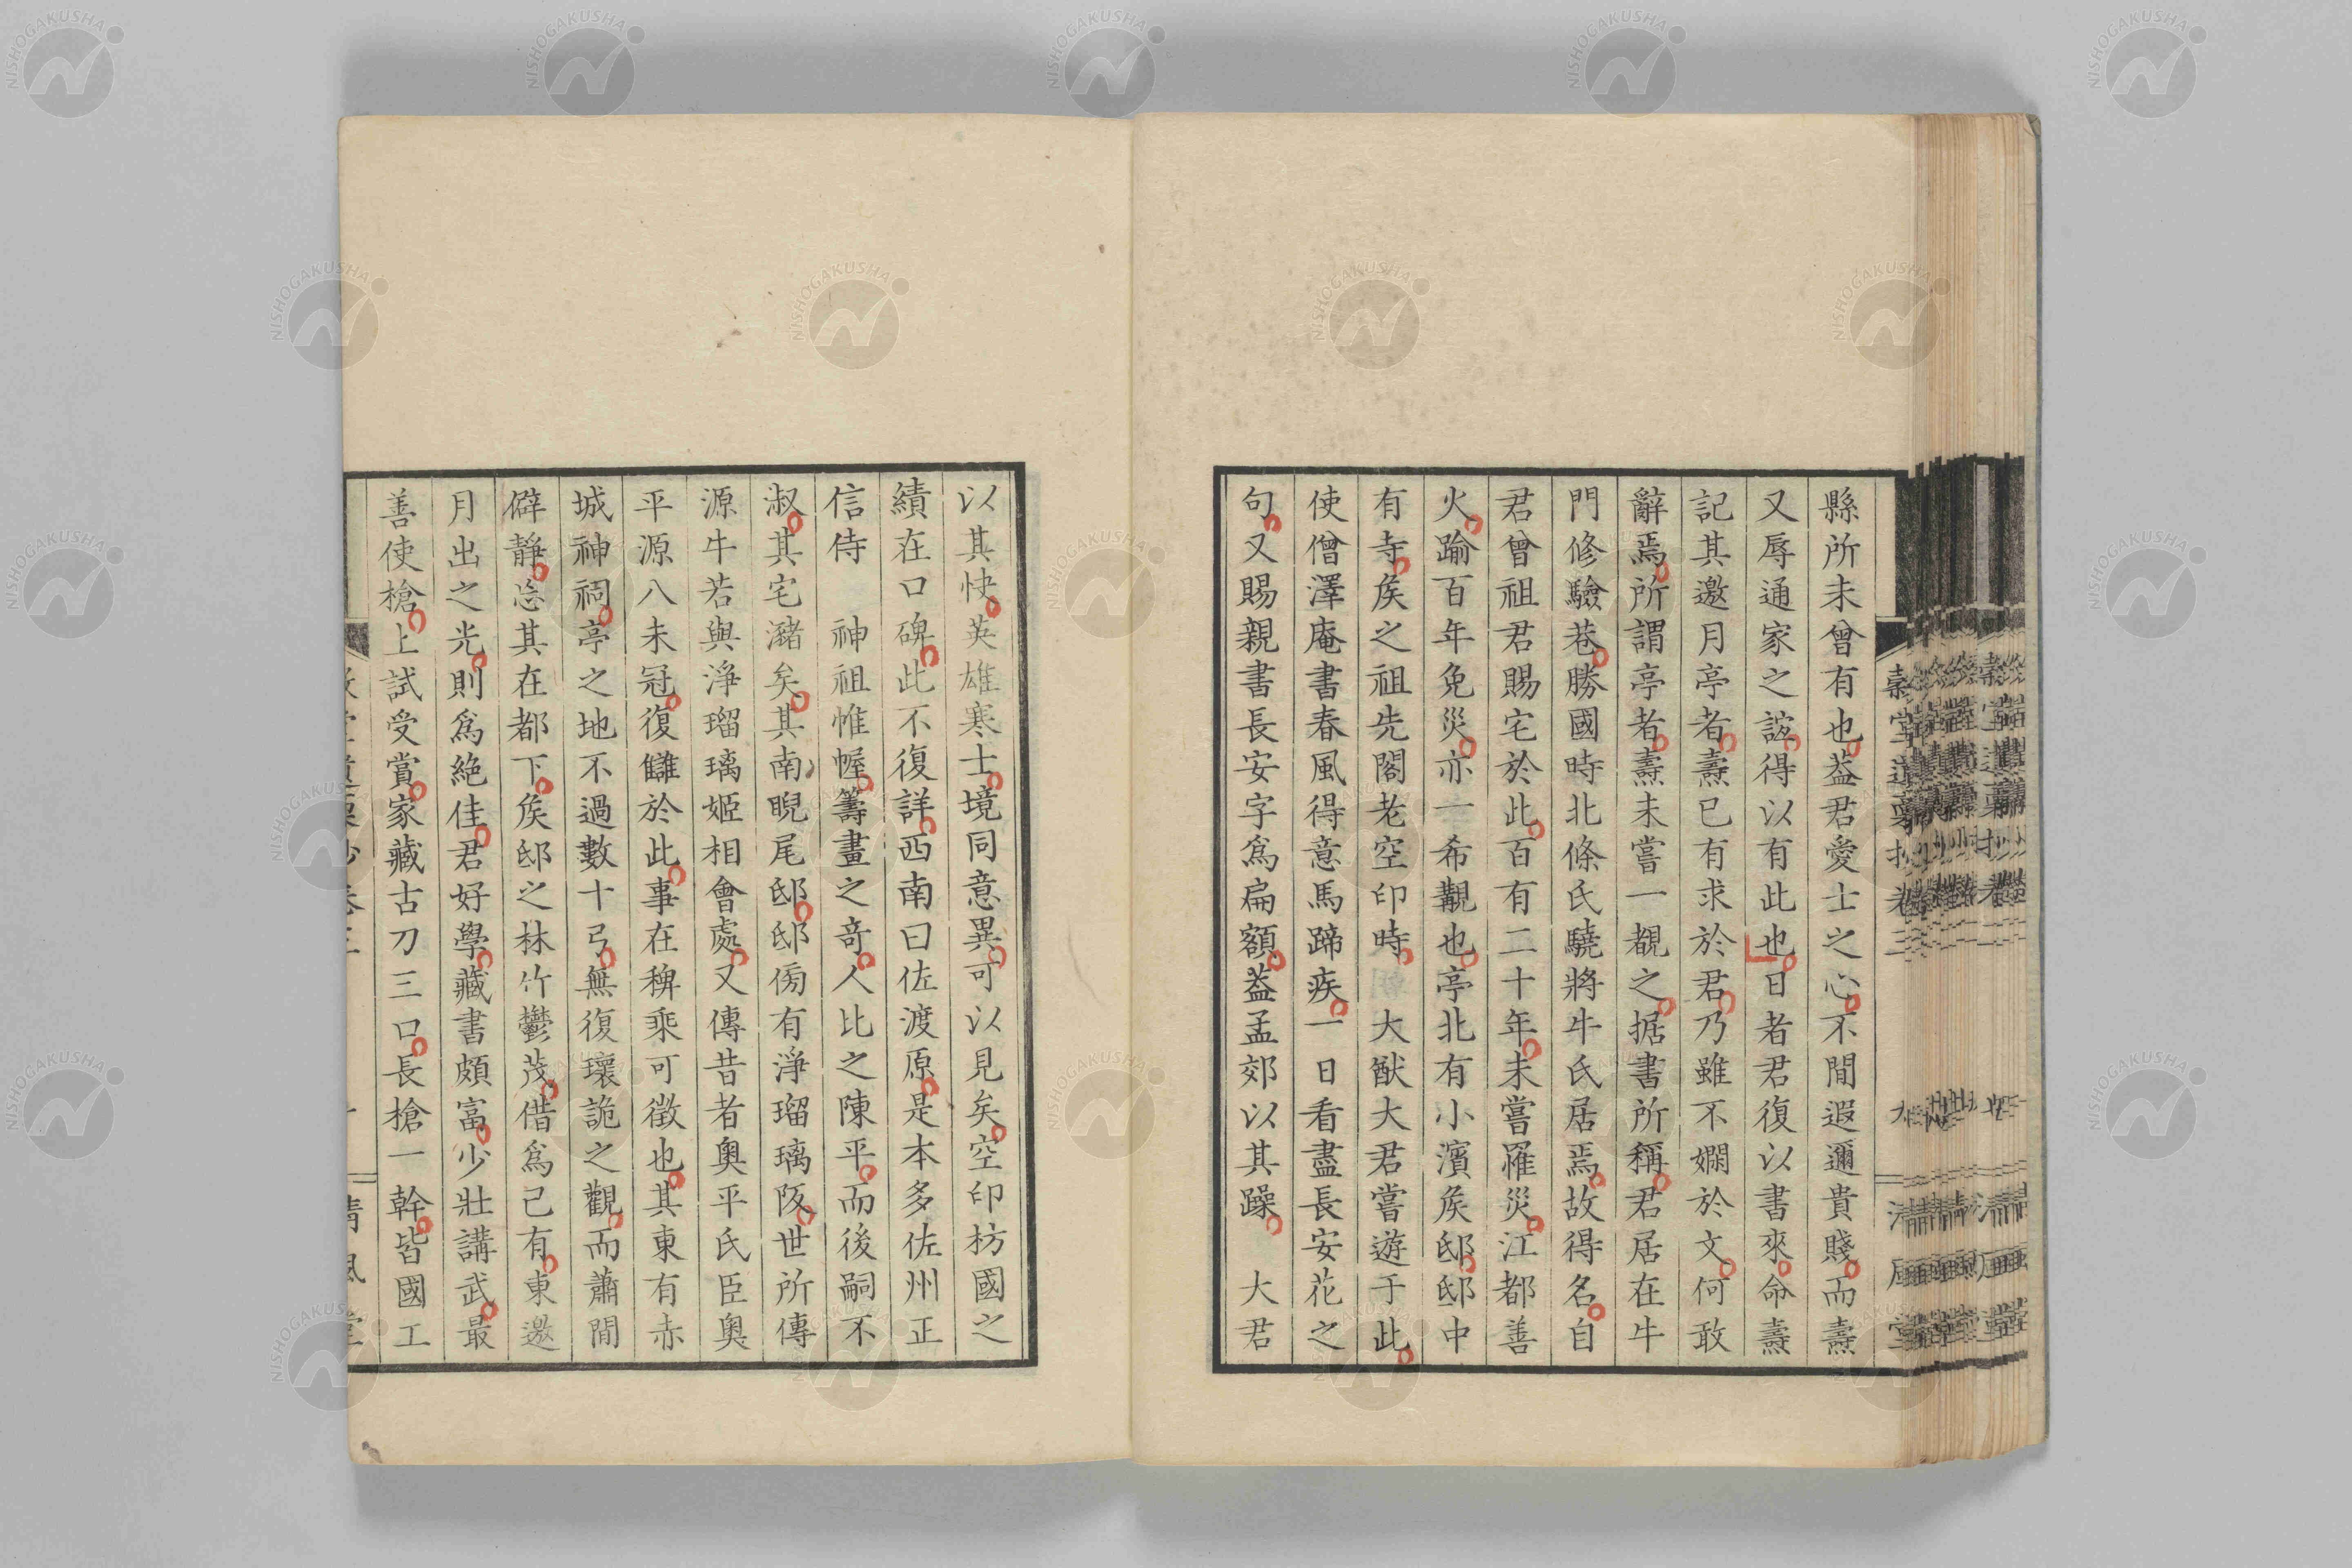 縣所未曾有也葢君愛士之心不間遐邇貴賤而壽
又辱通家之誼得以有此也日者君復以書來命壽
記其邀月亭者壽已有求於君乃雖不嫻於文何敢
辭焉所謂亭者壽未嘗一覩之据書所稱君居在牛
門修驗巷勝國時北條氏驍將牛氏居焉故得名自
君曾祖君賜宅於此百有二十年未嘗罹災江都善
火踰百年免災亦一希覯也亭北有小濱矦邸邸中
有寺矦之祖先閣老空印時大猷大君嘗遊于此
使僧澤庵書春風得意馬蹄疾一日看盡長安花之
句又賜親書長安字爲扁額葢孟郊以其躁 大君
以其快英雄寒士境同意異可以見矣空印枋國之
績在口碑此不復詳西南曰佐渡原是本多佐州正
信侍 神祖惟幄籌畫之奇人比之陳平而後嗣不
淑其宅瀦矣其南睨尾邸邸傍有淨瑠璃阪世所傳
源牛若與淨瑠璃姬相會處又傳昔者奧平氏臣奧
平源八未冠復讎於此事在稗乘可徵也其東有赤
城神祠亭之地不過數十弓無復瓌詭之觀而蕭閒
僻靜忘其在都下矦邸之林竹鬱茂借爲己有東邀
月出之光則爲絶佳君好學藏書頗富少壯講武最
善使槍上試受賞家藏古刀三口長槍一幹皆國工
NISHOGAKUSHA